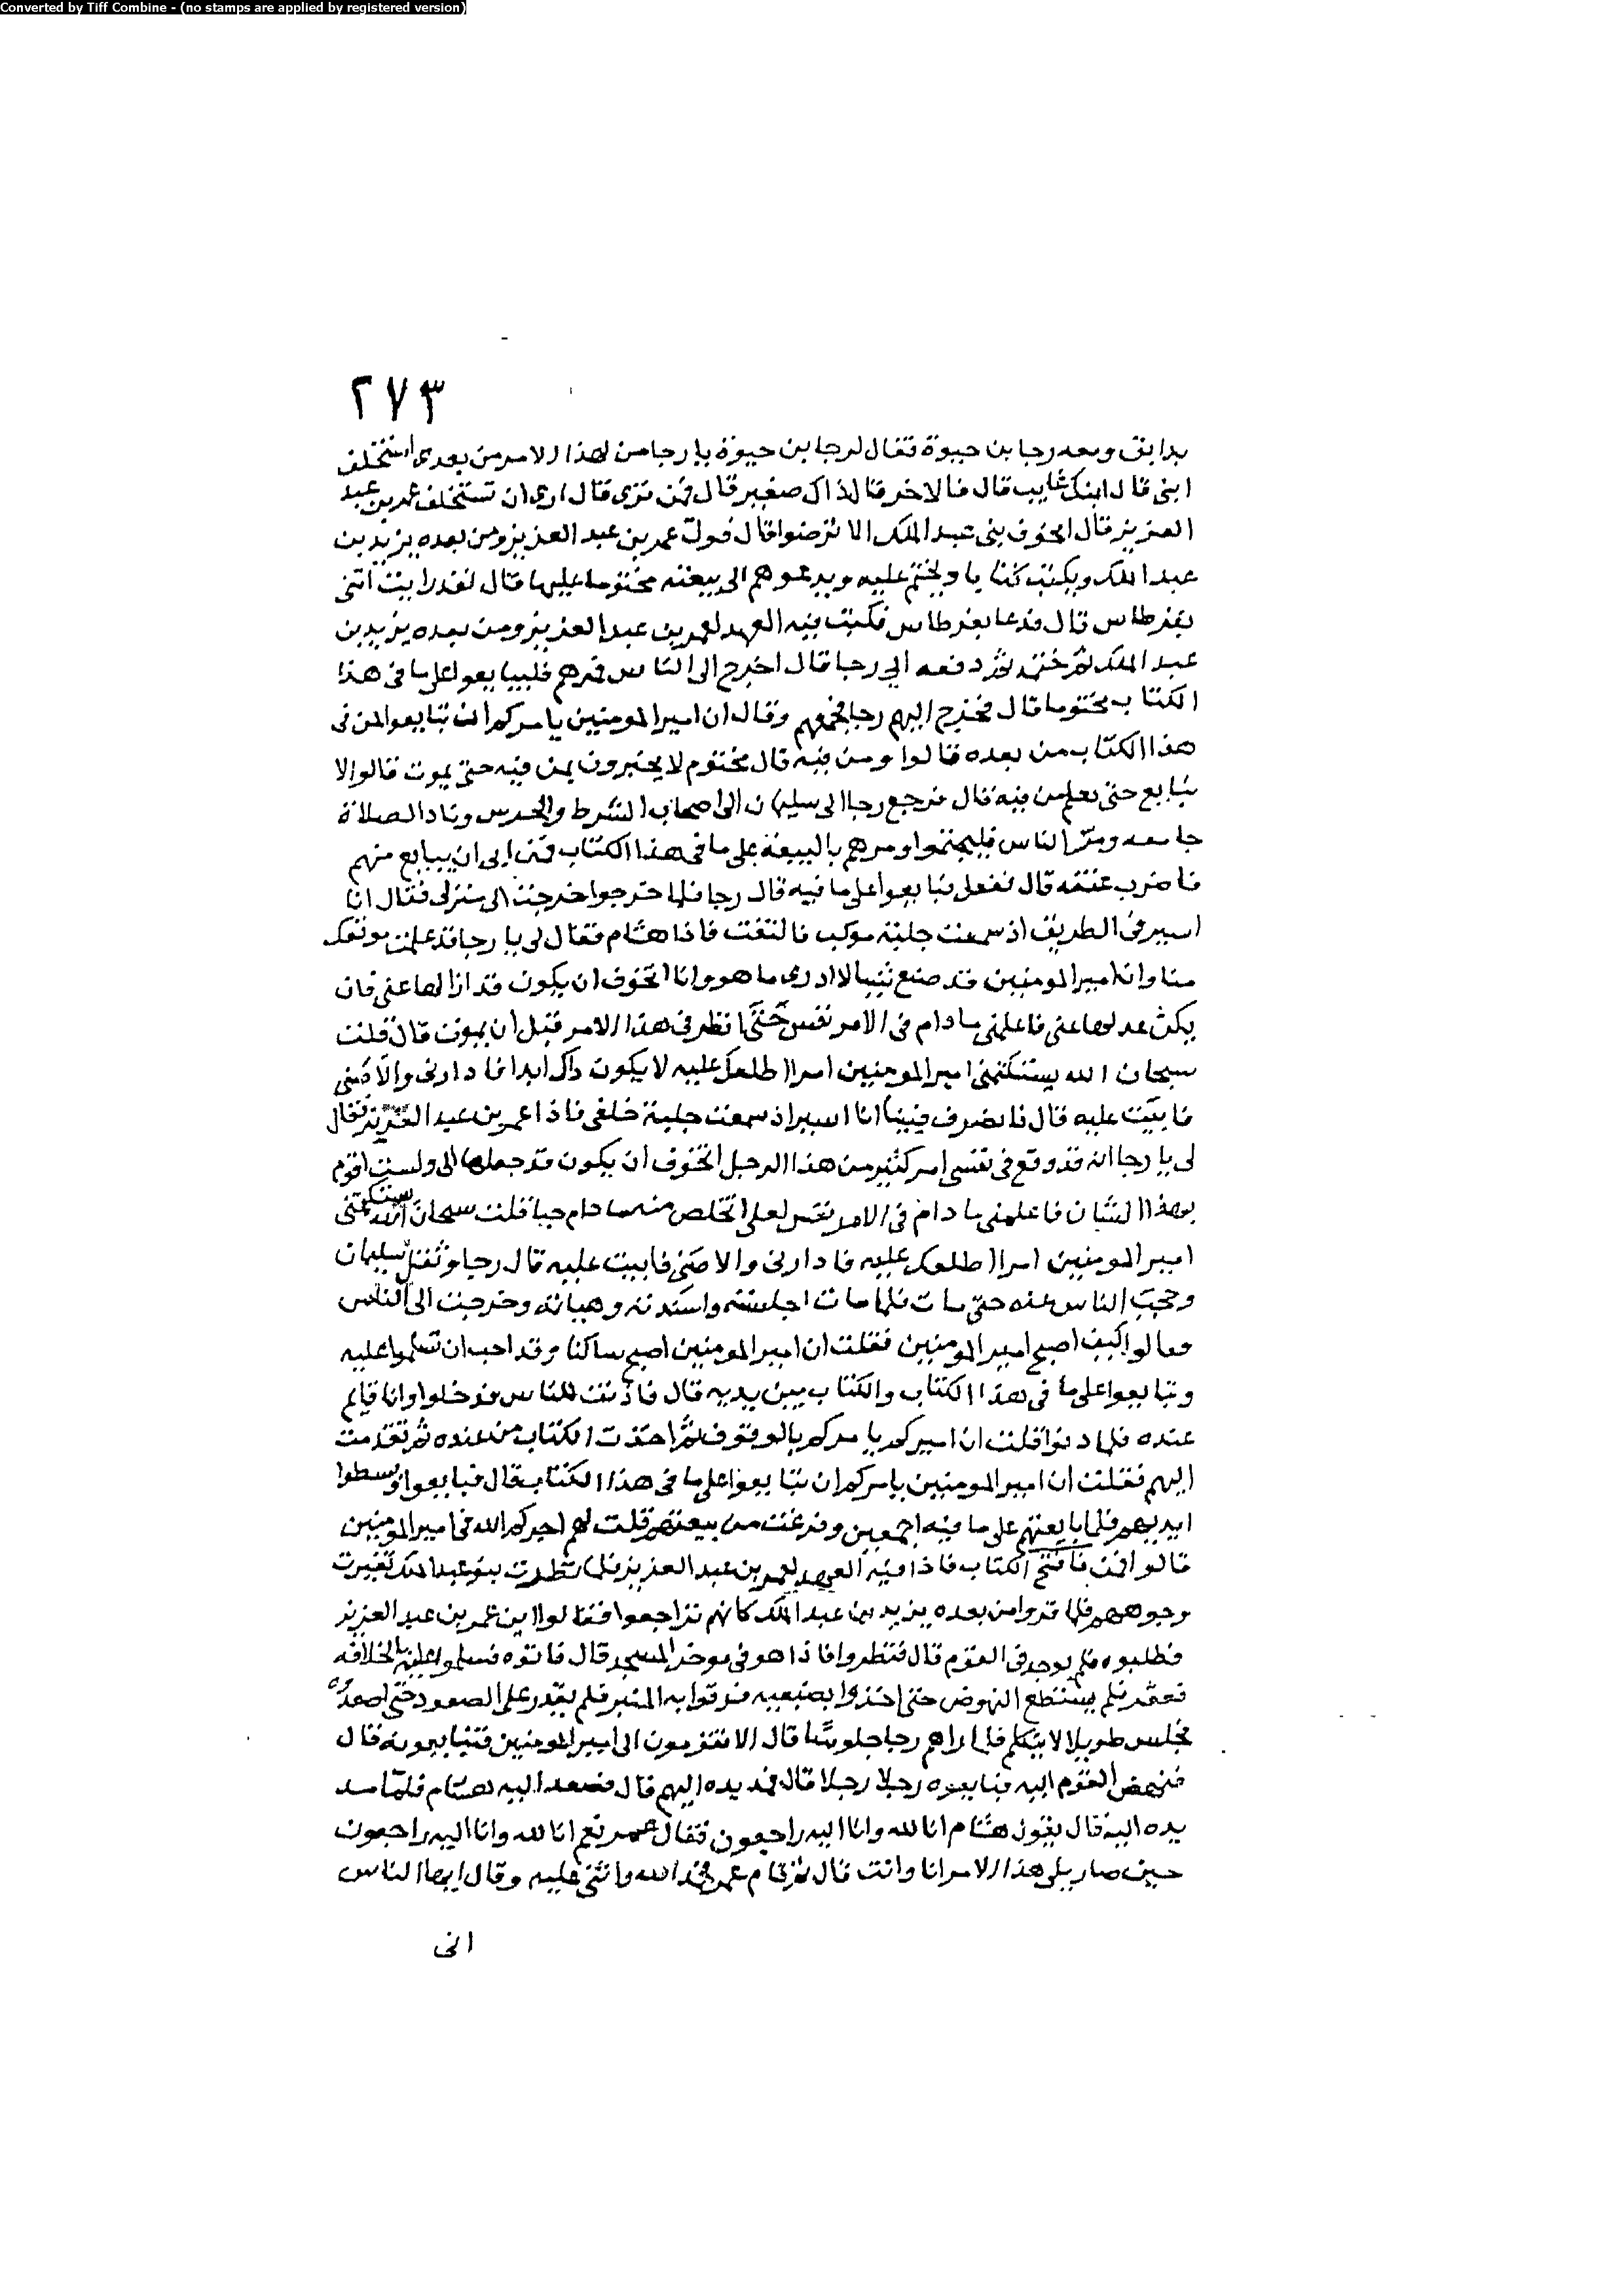 Converted by Tiff Combine - (no stamps are applied by registered version)
٢٧٣
بدابق ومعه رجا بن حيوة فقال لرجا بن حيوة يا رجا من لهذا الامر من بعدى استخلف
ابنى قال ابنك غايب قال فالاخر قال ذاك صغير قال فمن ترى قال ارى ان تستخلف عمر بن عبد
العزيز قال اتخوف بنى عبد الملك الا يرضوا قال فول عمر بن عبد العزيز ومن بعده يزيد بن
عبد الملك ويكتب كتابا ويختم عليه ويدعوهم الى بيعته مختوما عليها قال لقد رايت ائتنى
بقرطاس قال فدعا بقرطاس فكتب فيه العهد لعمر بن عبد العزيز ومن بعده يزيد بن
عبد الملك ثم ختمه ثم دفعه الى رجا قال اخرج الى الناس فمرهم فليبايعوا على ما فى هذا
الكتاب مختوما قال فخرج اليهم رجا فجمعهم وقال ان امير المومنين يامركم ان تبايعوا لمن فى
هذا الكتاب من بعده قالوا ومن فيه قال مختوم لا يخبرون بمن فيه حتى يموت قالوا لا
نبايع حتى نعلم من فيه قال فرجع رجا الى سليمان الى اصحاب الشرط والحرس وناد الصلاة
جامعه ومر الناس فليجتمعوا ومرهم بالبيعة على ما فى هذا الكتاب فمن ابى ان يبايع منهم
فاضرب عنقه قال ففعل فبايعوا على ما فيه قال رجا فلما خرجوا خرجت الى منزلى فقال انا
اسير فى الطريق اذ سمعت جلبة موكب فالتفت فاذا هشام فقال لى يا رجا قد علمت موقعك
منا وان امير المومنين قد صنع شيا لا ادرى ما هو وانا اتخوف ان يكون قد ازالها عنى فان
يكن عدلها عنى فاعلمنى ما دام فى الامر نفس حتى انظر فى هذا الامر قبل ان يموت قال قلت
سبحان الله يستكتمنى امير المومنين امرا اطلعك عليه لا يكون ذاك ابدا فادارنى والاصنى
فابيت عليه قال فانصرف فبينا انا اسير اذ سمعت جلبة خلفى فاذا عمر بن عبد العزيز فقال
لى يا رجا انه قد وقع فى نفسى امر كثير من هذا الرجل اتخوف ان يكون قد جعلها الى ولست اقوم
بهذا الشان فاعلمنى ما دام فى الامر نفس لعلى اتخلص منه ما دام حيا قلت سبحان الله يستكتمنى
امير المومنين امرا اطلعك عليه فادارنى والاصنى فابيت عليه قال رجا وثقل سليمان
وحجب الناس عنه حتى مات فلما مات اجلسته واسندته وهياته وخرجت الى الناس
فقالوا كيف اصبح امير المومنين فقلت ان امير المومنين اصبح ساكنا وقد احب ان تسلموا عليه
وتبايعوا على ما فى هذا الكتاب والكتاب بين يديه قال فاذنت للناس فدخلوا وانا قايم
عنده فلما دنوا قلت ان اميركم يامركم بالوقوف ثم اخذت الكتاب من عنده ثم تقدمت
اليهم فقلت ان امير المومنين يامركم ان تبايعوا على ما فى هذا الكتاب قال فبايعوا وبسطوا
ايديهم فلما بايعتهم على ما فيه اجمعين وفرغت من بيعتهم قلت لهم اجركم الله فى امير المومنين
قالوا فمن فافتتح الكتاب فاذا فيه العهد لعمر بن عبد العزيز فلما نظرت بنو عبد الملك تغيرت
وجوههم فلما قروا من بعده يزيد بن عبد الملك كانهم تراجعوا فقالوا اين عمر بن عبد العزيز
فطلبوه فلم يوجد فى القوم قال فنظروا فاذا هو فى موخر المسجد قال فاتوه فسلموا عليه بالخلافه
فعقر فلم يستطع النهوض حتى اخذوا بضبعيه فرقوا به المنبر فلم يقدر على الصعود حتى اصعدوه
فجلس طويلا لا يتكلم فلما راهم رجا جلوسا قال الا تقومون الى امير المومنين فتبايعونه قال
فنهض القوم اليه فبايعوه رجلا رجلا قال فمد يده اليهم قال فصعد اليه هشام فلما مد
يده اليه قال يقول هشام انا لله وانا اليه راجعون فقال عمر نعم انا لله وانا اليه راجعون
حين صار يلى هذا الامر انا وانت قال ثم قام عمر فحمد الله واثنى عليه وقال ايها الناس
انى